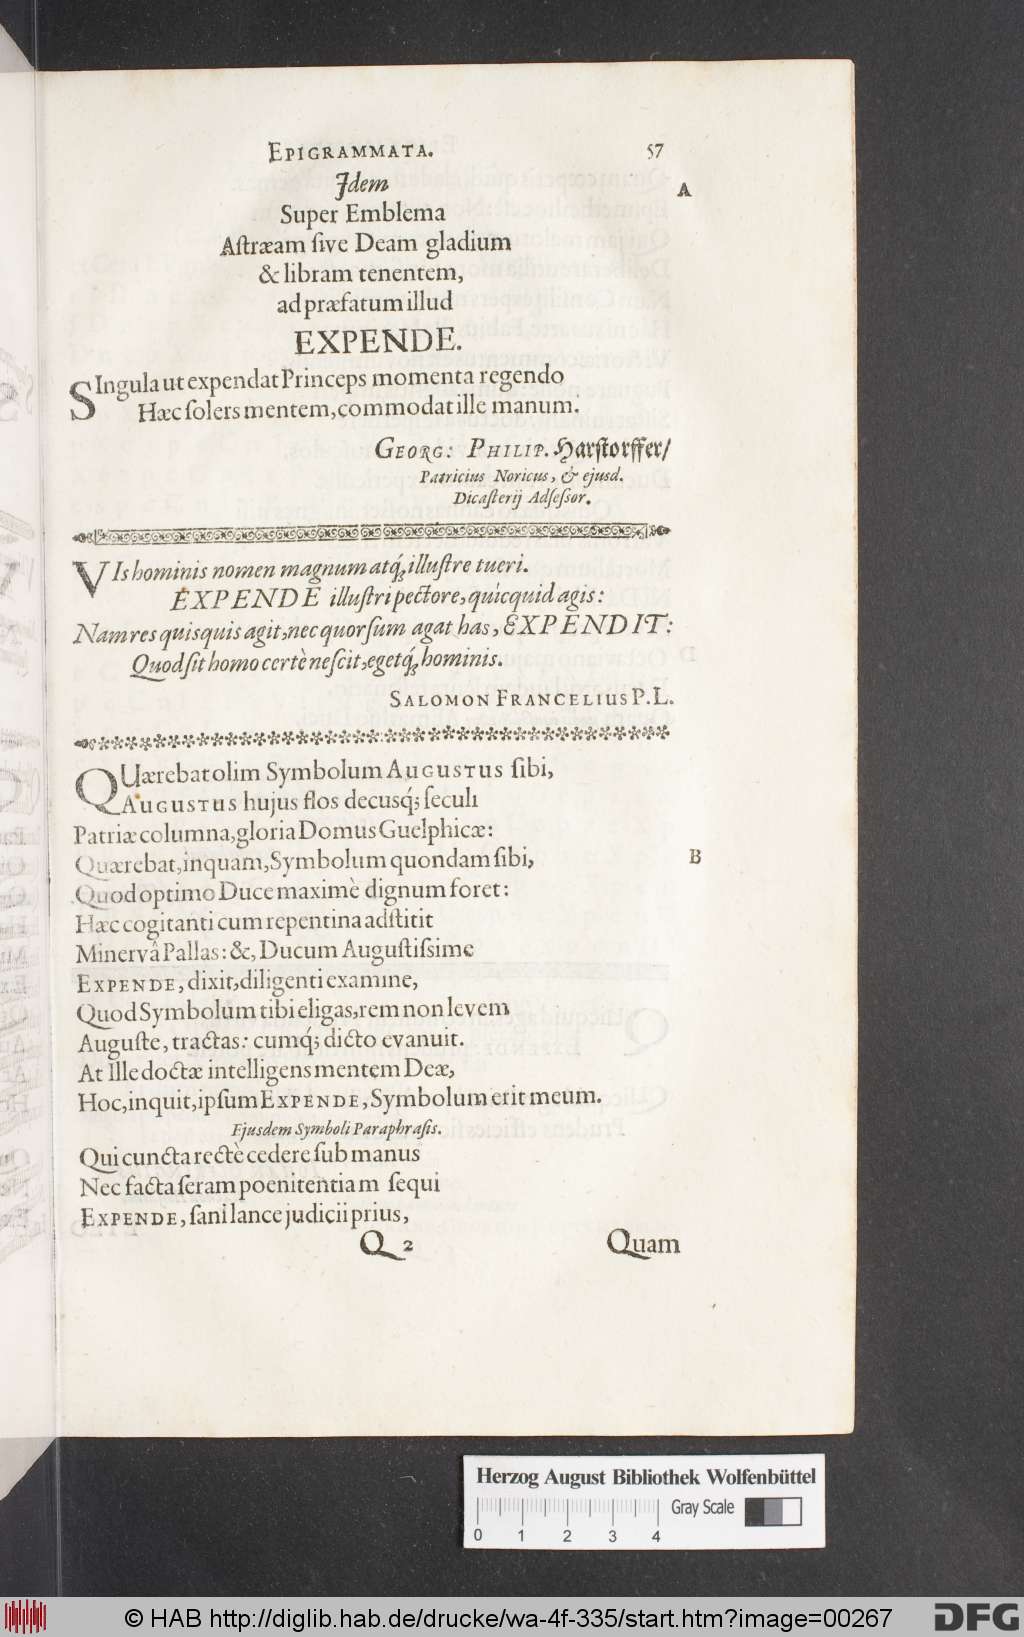 EPIGRAMMATA. 57
Idem A
Super Emblema
Aſtræam ſive Deam gladium
& libram tenentem,
ad præfatum illud
EXPENDE.
SIngula ut expendat Princeps momenta regendo
Hæc ſolers mentem, commodat ille manum.
GEORG: PHILIP. Harſtorffer/
Patricius Noricus, & ejusd.
Dicaſterij Adſeſsor.
VIs hominis nomen magnum atq́; illuſtre tueri.
EXPENDE illuſtri pectore, quicquid agis:
Nam res quisquis agit, nec quorſum agat has, EXPENDIT:
Quod ſit homo certè neſcit, egetq́; hominis.
SALOMON FRANCELIUS P. L.
QUærebat olim Symbolum AUGUSTUS ſibi,
AUGUSTUS hujus flos decusq́; ſeculi
Patriæ columna, gloria Domus Guelphicæ:
Quærebat, inquam, Symbolum quondam ſibi, B
Quod optimo Duce maximè dignum foret:
Hæc cogitanti cum repentina adſtitit
Minervâ Pallas: &, Ducum Auguſtiſsime
EXPENDE, dixit, diligenti examine,
Quod Symbolum tibi eligas, rem non levem
Auguſte, tractas: cumq́; dicto evanuit.
At Ille doctæ intelligens mentem Deæ,
Hoc, inquit, ipſum EXPENDE, Symbolum erit meum.
Ejusdem Symboli Paraphraſis.
Qui cuncta rectè cedere ſub manus
Nec facta ſeram poenitentiam ſequi
EXPENDE, ſani lance judicii prius,
Q 2 Quam
Herzog August Bibliothek Wolfenbüttel
Gray Scale
0 1 2 3 4
© HAB http://diglib.hab.de/drucke/wa-4f-335/start.htm?image=00267 DFG